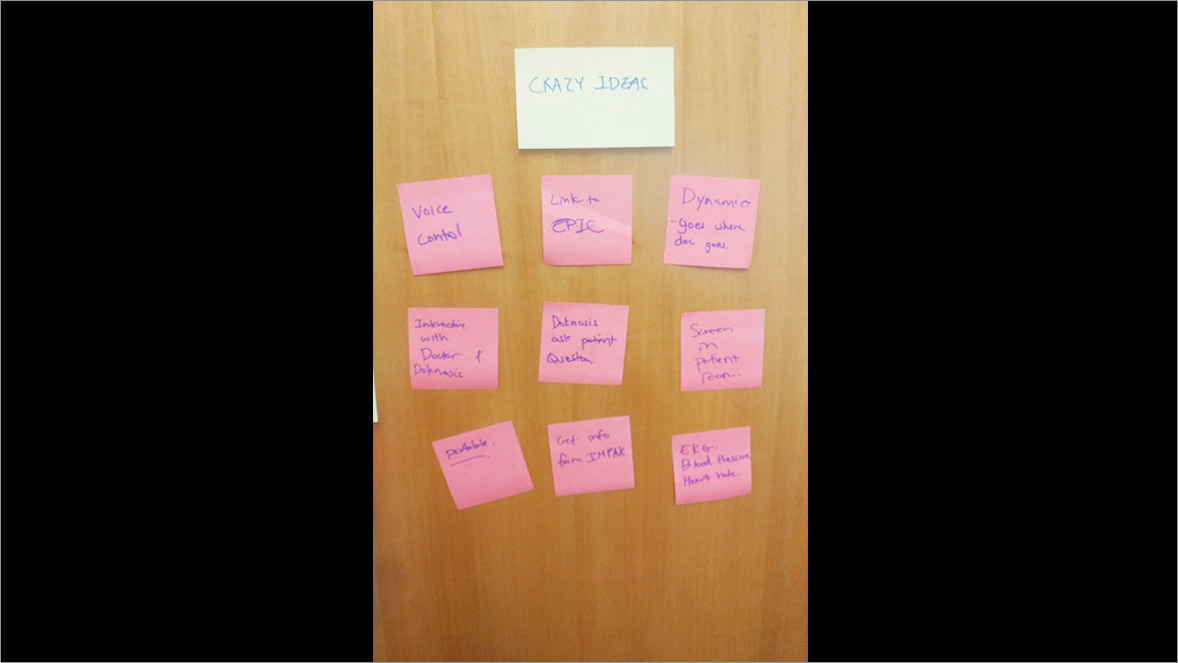 CRAZY IDEAS
Voice
control
Link to
EPIC
Dynamic
- goes where
doc goes.
Interactive
with
Doctor &
Doknosis
Doknosis
ask patient
Question
Screen
in
patient
room..
portable.
Get info
from IMPAK
EKG.
Blood Pressure
Heart rate.